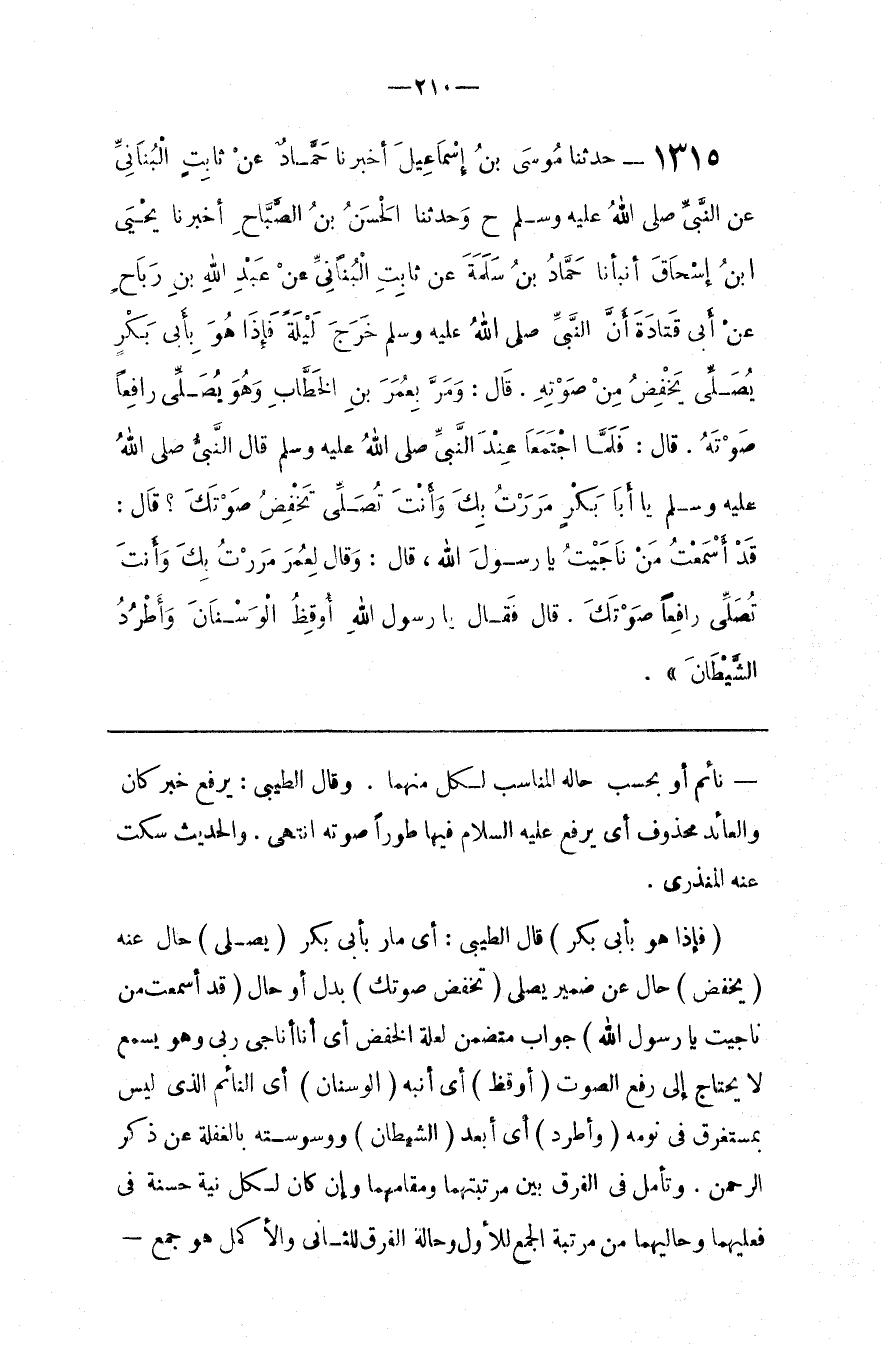 —٢١٠—
١٣١٥ — حدثنا مُوسَى بنُ إِسْمَاعِيلَ أخبرنا حَمَّادٌ عنْ ثابِتٍ الْبُنَانِيِّ
عن النَّبيِّ صلى اللهُ عليه وسلم ح وَحدثنا الحْسَنُ بنُ الصَّبَّاحِ أخبرنا يحْيَى
ابنُ إِسْحَاقَ أنبأنا حَمَّادُ بنُ سَلَمَةَ عن ثابِتٍ الْبُنَانِيِّ عنْ عَبْدِ اللهِ بنِ رَبَاحٍ
عنْ أَبى قَتَادَةَ أَنَّ النَّبيَّ صلى اللهُ عليه وسلم خَرَجَ لَيْلَةً فَإِذَا هُوَ بِأَبى بَكْرٍ
يُصَلِّى يَخْفِضُ مِنْ صَوْتِهِ . قال : وَمَرَّ بِعُمَرَ بنِ الخَطَّابِ وَهُوَ يُصَلِّى رافِعاً
صَوْتَهُ . قال : فَلَمَّا اجْتَمَعَا عِنْدَ النَّبيِّ صلى اللهُ عليه وسلم قال النَّبيُّ صلى اللهُ
عليه وسلم يا أَبَا بَكْرٍ مَرَرْتُ بِكَ وَأَنْتَ تُصَلِّى تَخْفِضُ صَوْتَكَ ؟ قال :
قَدْ أَسْمَعْتُ مَنْ نَاجَيْتُ يا رسولَ الله ، قال : وَقال لِعُمَرَ مَررْتُ بِكَ وَأَنتَ
تُصَلِّى رافِعاً صَوْتَكَ . قال فَقال يا رسول اللهِ أُوقِظُ الْوَسْنَانَ وَأَطْرُدُ
الشَّيْطَانَ » .
— نائم أو بحسب حاله المناسب لكل منهما . وقال الطيبى : يرفع خبر كان
والعائد محذوف أى يرفع عليه السلام فيها طوراً صوته انتهى . والحديث سكت
عنه المنذرى .
( فإذا هو بأبى بكر ) قال الطيبى : أى مار بأبى بكر ( يصلى ) حال عنه
( يخفض ) حال عن ضمير يصلى ( تخفض صوتك ) بدل أو حال ( قد أسمعت من
ناجيت يا رسول الله ) جواب متضمن لعلة الخفض أى أنا أناجى ربى وهو يسمع
لا يحتاج إلى رفع الصوت ( أوقظ ) أى أنبه ( الوسنان ) أى النائم الذى ليس
بمستغرق فى نومه ( وأطرد ) أى أبعد ( الشيطان ) ووسوسته بالغفلة عن ذكر
الرحمن . وتأمل فى الفرق بين مرتبتهما ومقامهما وإن كان لكل نية حسنة فى
فعليهما وحاليهما من مرتبة الجمع للأول وحالة الفرق للثانى والأكمل هو جمع —